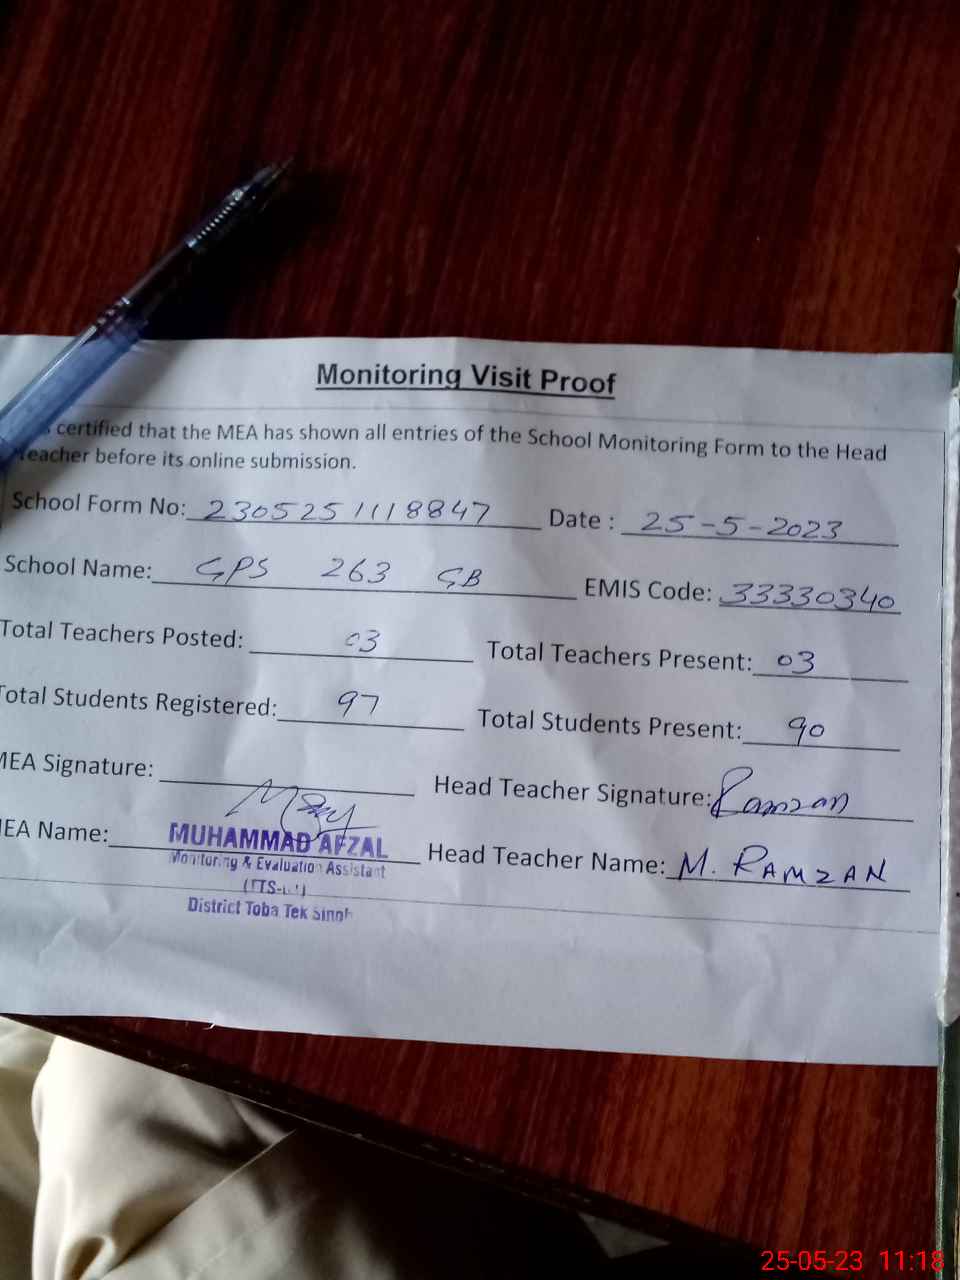 Monitoring Visit Proof
certified that the MEA has shown all entries of the School Monitoring Form to the Head
Teacher before its online submission.
School Form No: 2305251118847 Date : 25-5-2023
School Name: GPS 263 GB EMIS Code: 33330340
Total Teachers Posted: 03 Total Teachers Present: 03
Total Students Registered: 97 Total Students Present: 90
MEA Signature: Head Teacher Signature: Ramzan
MEA Name: MUHAMMAD AFZAL Head Teacher Name: M. RAMZAN
Monitoring & Evaluation Assistant
District Toba Tek Singh
25-05-23 11:18